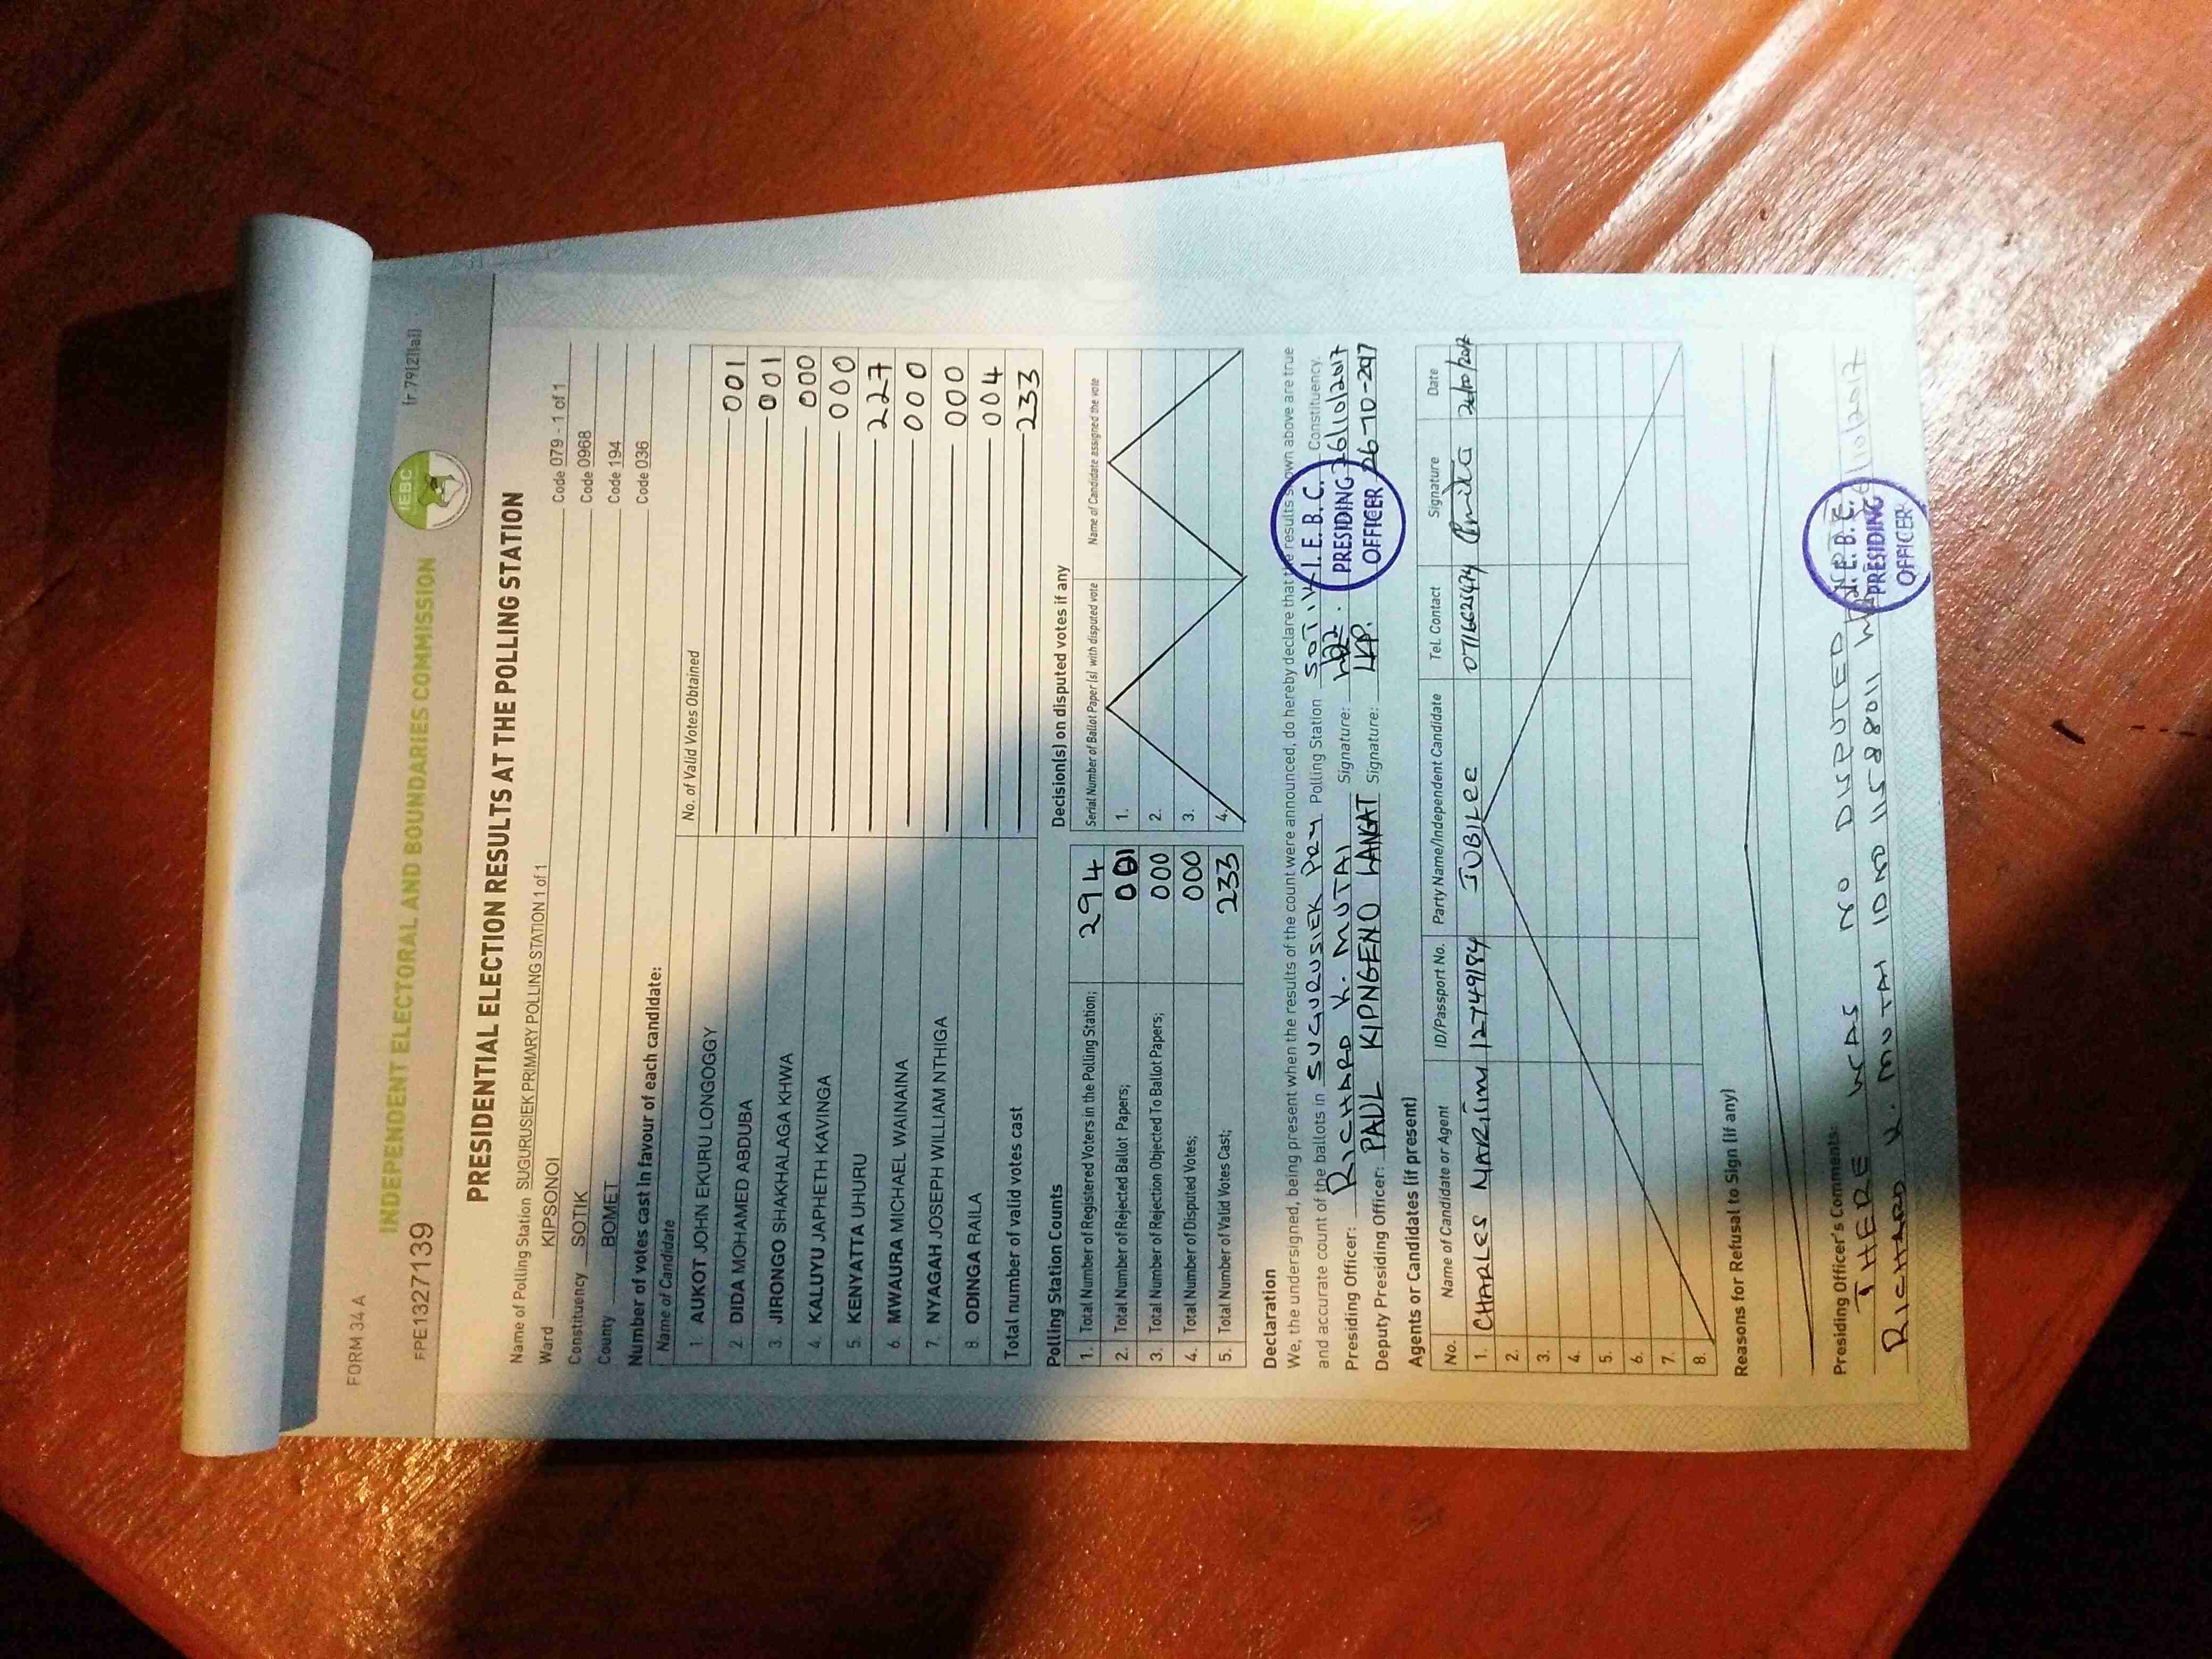 FORM 34 A
(r 79(2)(a))
INDEPENDENT ELECTORAL AND BOUNDARIES COMMISSION
IEBC
FPE1327139
PRESIDENTIAL ELECTION RESULTS AT THE POLLING STATION
Name of Polling Station SUGURUSIEK PRIMARY POLLING STATION 1 of 1 Code 079 - 1 of 1
Ward KIPSONOI Code 0968
Constituency SOTIK Code 194
County BOMET Code 036
Number of votes cast in favour of each candidate:
Name of Candidate No. of Valid Votes Obtained
1. AUKOT JOHN EKURU LONGOGGY 001
2 DIDA MOHAMED ABDUBA 001
3. JIRONGO SHAKHALAGA KHWA 000
4. KALUYU JAPHETH KAVINGA 000
5. KENYATTA UHURU 227
6. MWAURA MICHAEL WAINAINA 000
7. NYAGAH JOSEPH WILLIAM NTHIGA 000
8. ODINGA RAILA 004
Total number of valid votes cast 233
Polling Station Counts Decision(s) on disputed votes if any
Serial Number of Ballot Paper (s) with disputed vote Name of Candidate assigned the vote
1. Total Number of Registered Voters in the Polling Station; 294 1.
2. Total Number of Rejected Ballot Papers; 001 2.
3. Total Number of Rejection Objected To Ballot Papers; 000 3.
4. Total Number of Disputed Votes; 000 4.
5. Total Number of Valid Votes Cast; 233
Declaration
We, the undersigned, being present when the results of the count were announced, do hereby declare that the results shown above are true
and accurate count of the ballots in SUGURUSIEK PRY Polling Station SOTIK Constituency.
Presiding Officer: RICHARD K. MUTAI Signature: 26/10/2017
Deputy Presiding Officer: PAUL KIPNGENO LANGAT Signature: 26-10-2017
I.E.B.C.
PRESIDING
OFFICER
Agents or Candidates (if present)
No. Name of Candidate or Agent ID/Passport No. Party Name/Independent Candidate Tel. Contact Signature Date
1. CHARLES 12749184 JUBILEE 26/10/2017
2.
3.
4.
5.
6.
7.
8.
Reasons for Refusal to Sign (if any)
Presiding Officer's Comments:
THERE WAS NO DISPUTED
RICHARD K. MUTAI ID NO 11588011
I.E.B.C.
PRESIDING
OFFICER